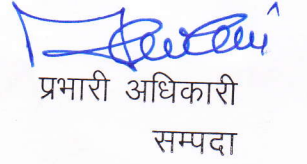 प्रभारी अधिकारी
सम्पदा